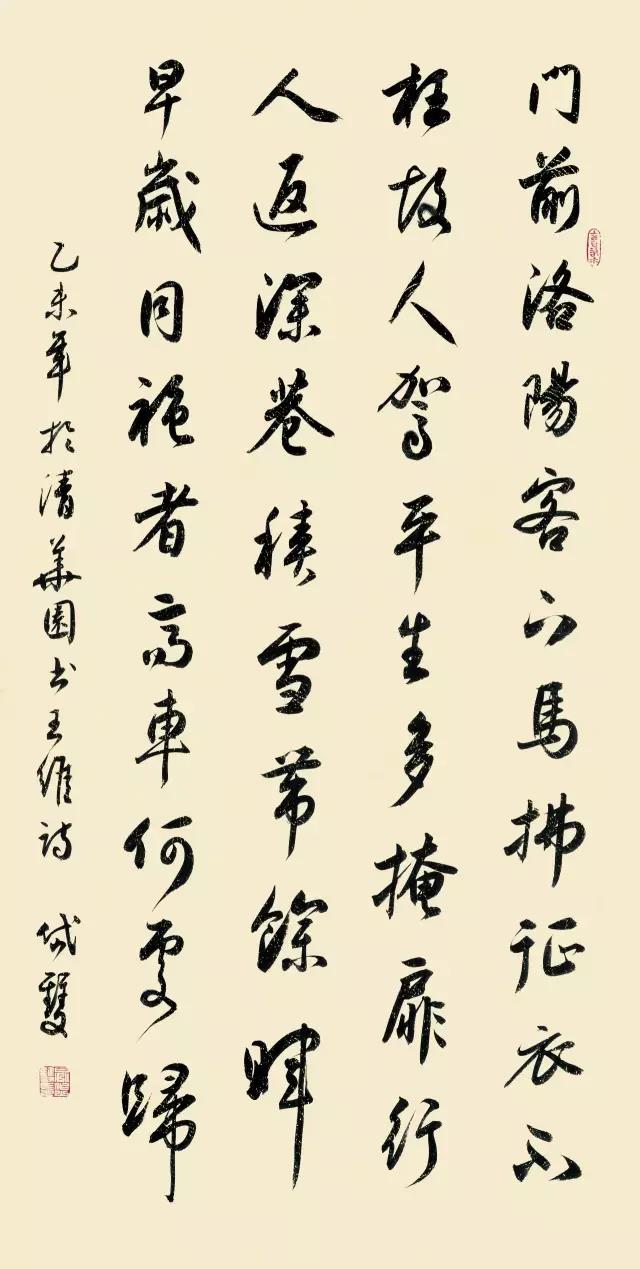 門前洛陽客下馬拂征衣不
枉故人駕平生多掩扉行
人返深巷積雪帶餘暉
早歲同袍者高車何處歸
乙未年於清華園书王維詩 雙